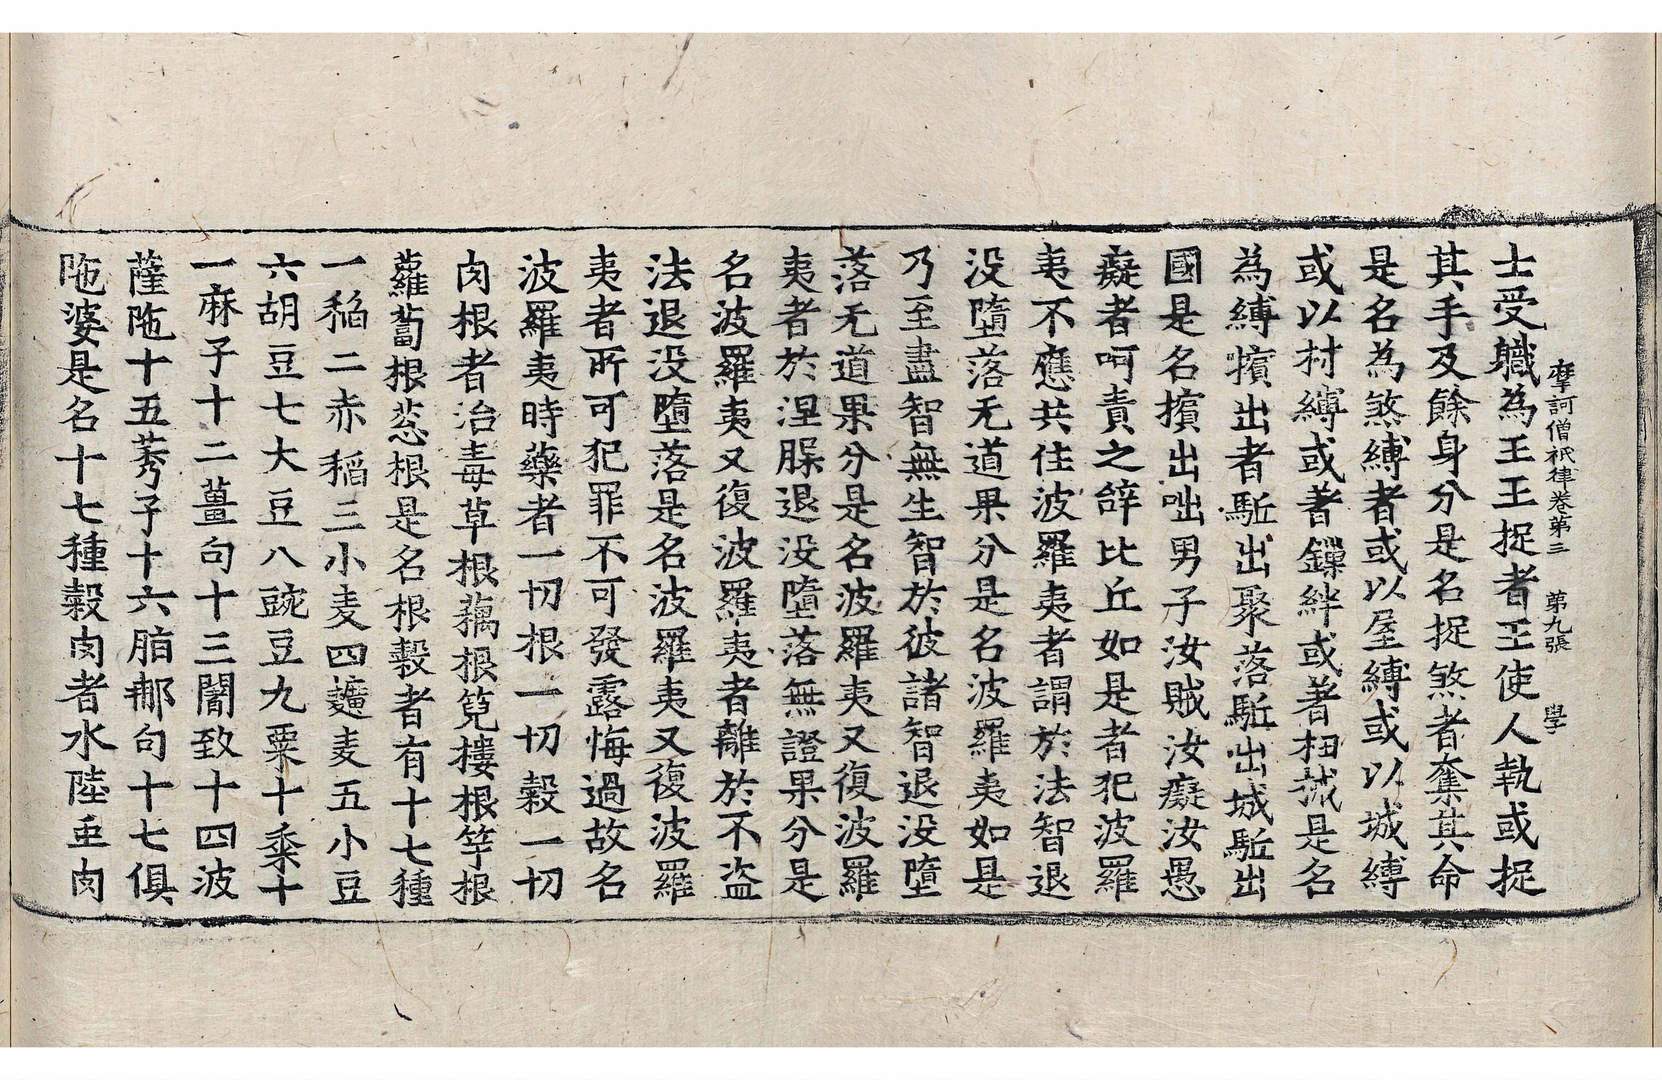 摩訶僧祇律卷第三 第九張 學
士受職為王王捉者王使人執或捉
其手及餘身分是名捉煞者奪其命
是名為煞縛者或以屋縛或以城縛
或以材縛或著鏁絆或著杻械是名
為縛擯出者駈出聚落駈出城駈出
國是名擯出咄男子汝賊汝癡汝愚
癡者呵責之辝比丘如是者犯波羅
夷不應共住波羅夷者謂於法智退
没墮落无道果分是名波羅夷如是
乃至盡智無生智於彼諸智退没墮
落无道果分是名波羅夷又復波羅
夷者於涅槃退没墮落無證果分是
名波羅夷又復波羅夷者離於不盗
法退没墮落是名波羅夷又復波羅
夷者所可犯罪不可發露悔過故名
波羅夷時藥者一切根一切穀一切
肉根者治毒草根藕根筧摟根竽根
蘿蔔根葱根是名根穀者有十七種
一稻二赤稻三小麦四䵃麦五小豆
六胡豆七大豆八豌豆九粟十黍十
一麻子十二薑句十三闍致十四波
薩陁十五莠子十六脂那句十七俱
陁婆是名十七種穀肉者水陸虫肉